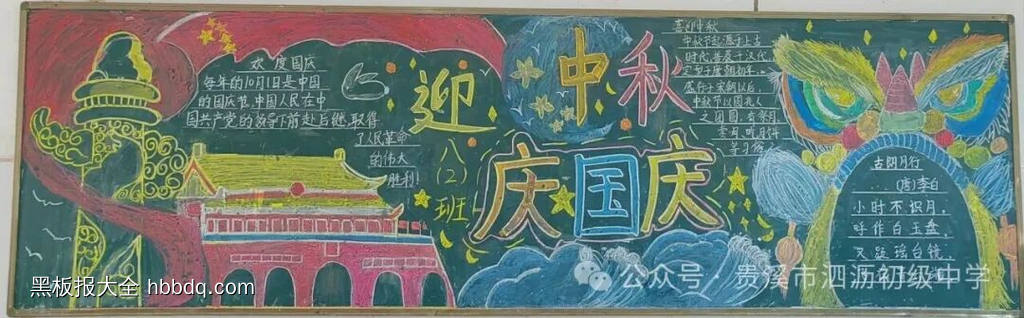 欢度国庆
每年的10月1日是中国
的国庆节,中国人民在中
国共产党的领导下前赴后继,取得
了人民革命
的伟大
胜利!
迎中秋
庆国庆
八(2)班
喜迎中秋
中秋节起源于上古
时代,普及于汉代
定型于唐朝初年,
盛行于宋朝以后,
中秋节以圆兆人
之团圆,有祭月
赏月,吃月饼
等习俗
古朗月行
(唐)李白
小时不识月,
呼作白玉盘,
又疑瑶台镜,
黑板报大全 hbbdq.com
公众号·贵溪市泗沥初级中学